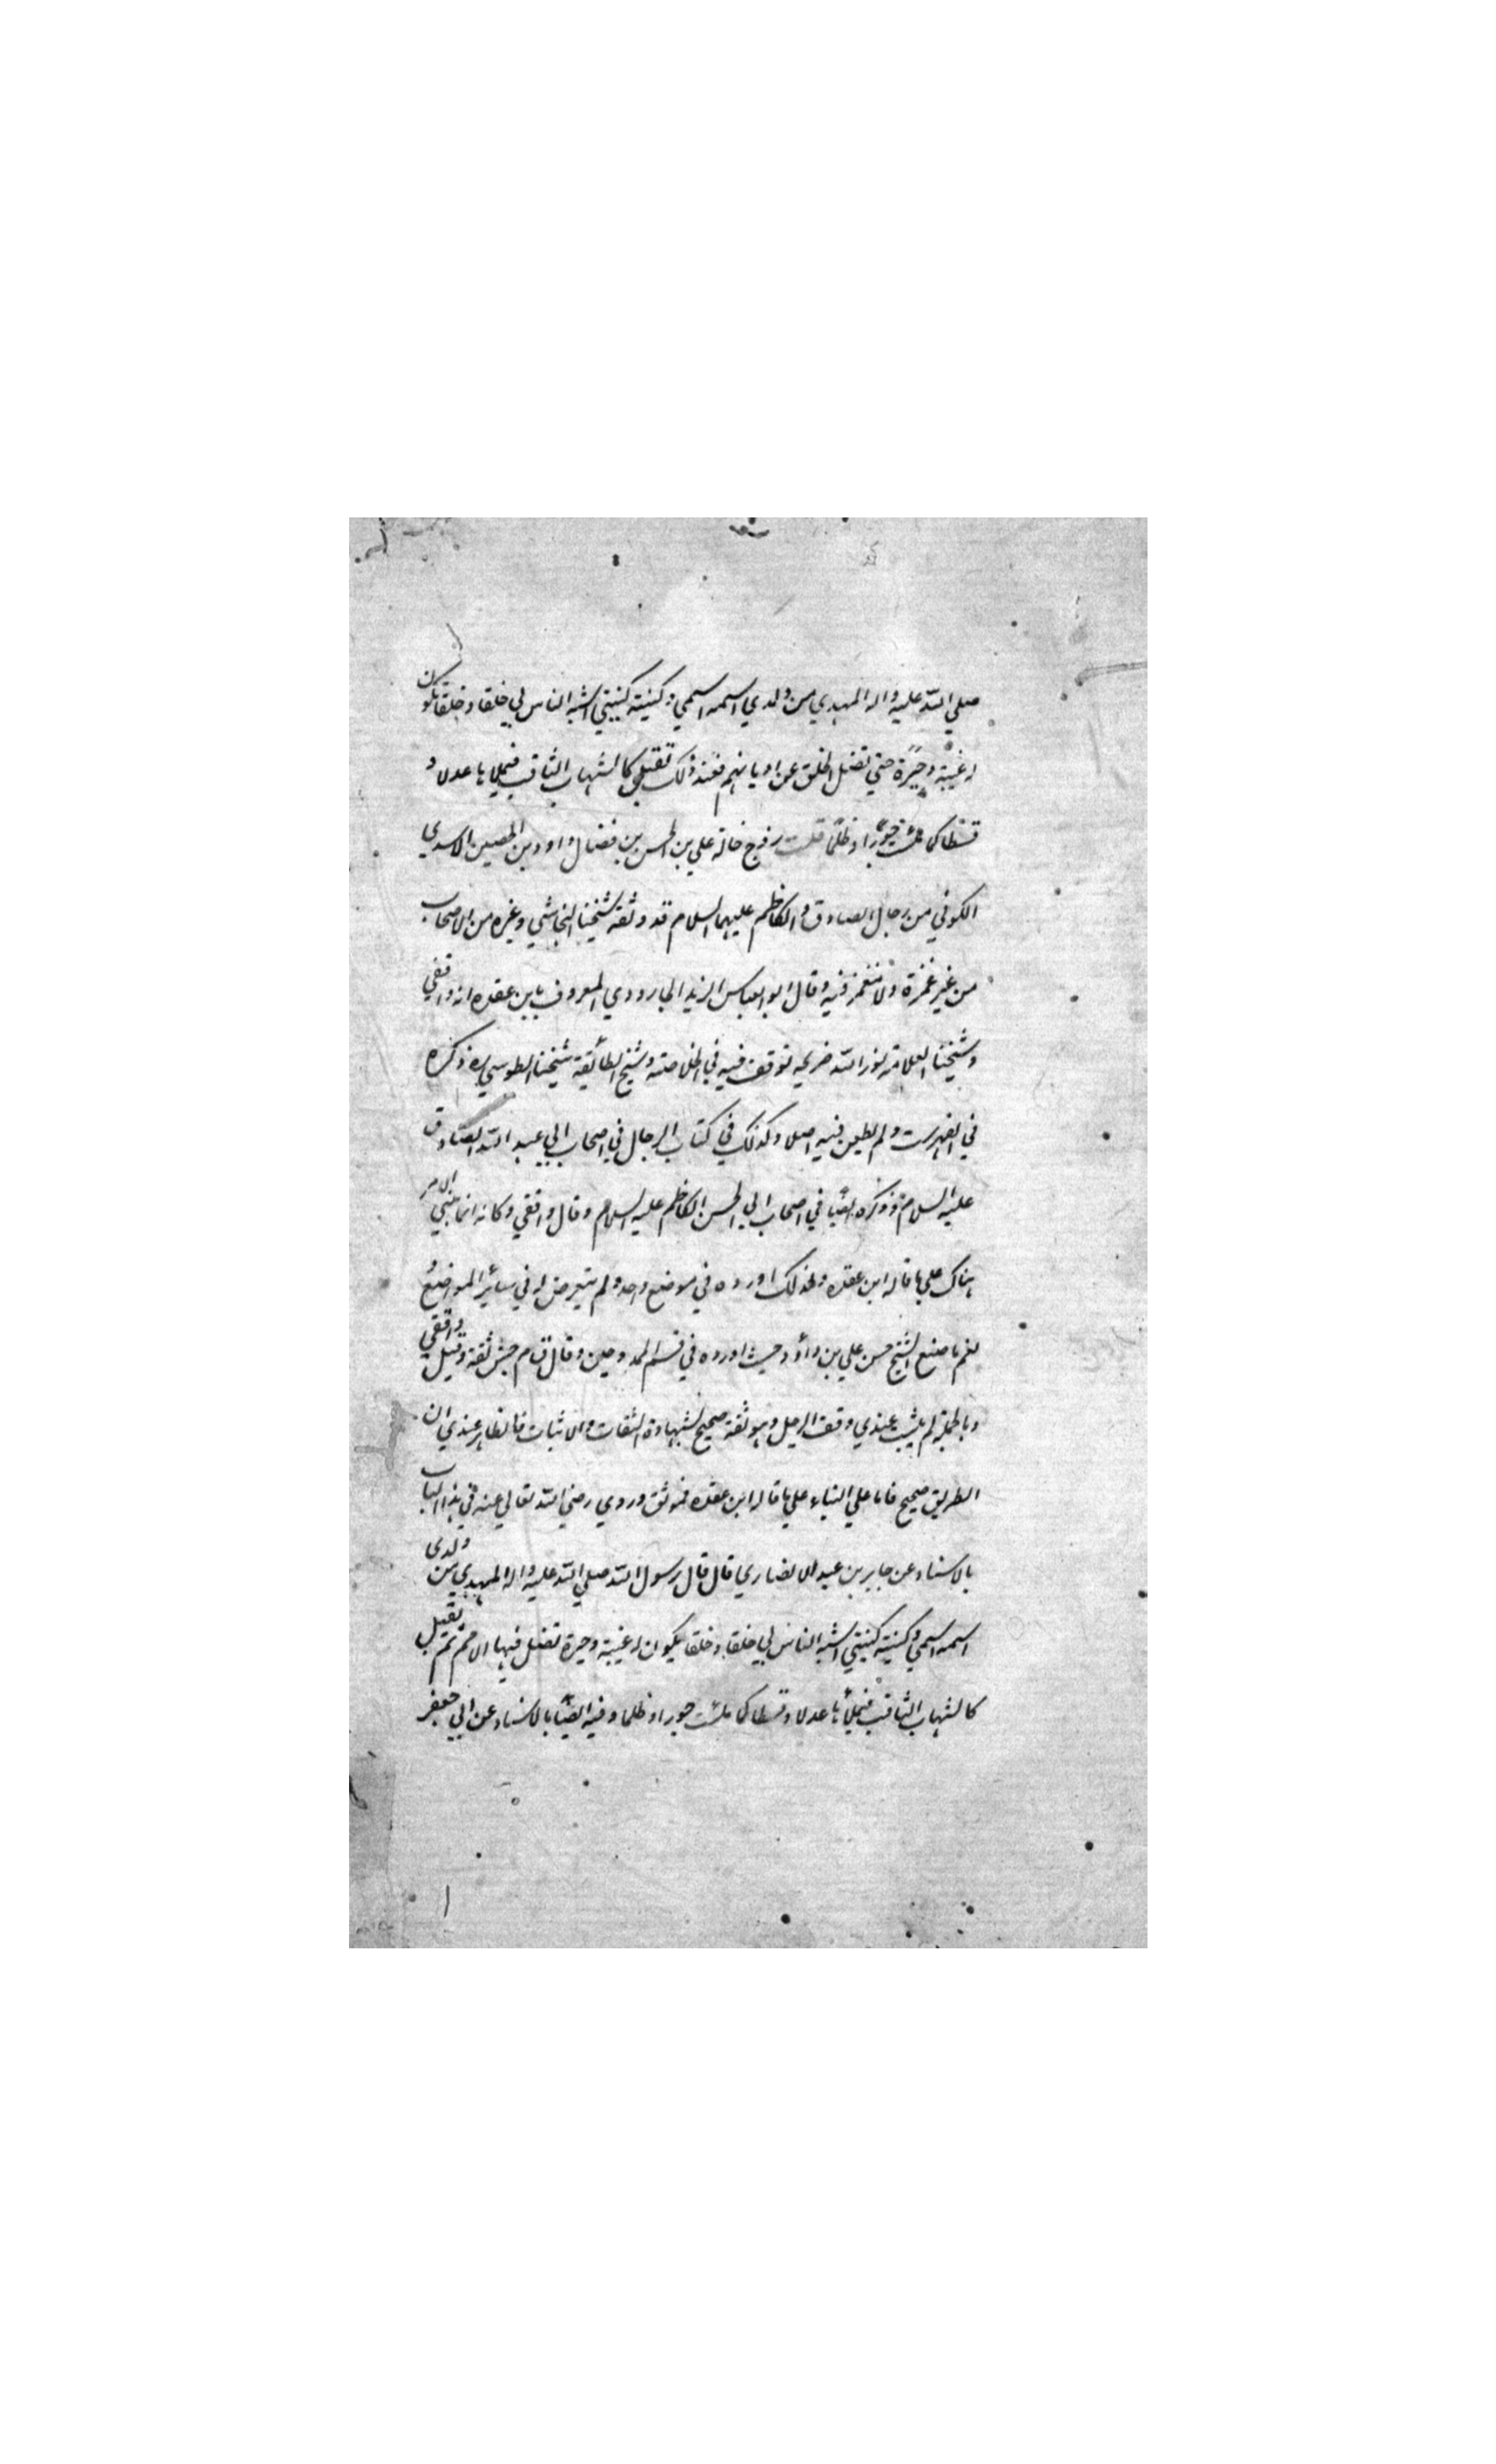 صلي الله عليه واله المهدي من ولدي اسمه اسمي وكنيته كنيتي اشبه الناس بي خلقا وخلقا تكون
له غيبة وحيرة حتي تضل الخلق عن اديانهم فعند ذلك تقبل كالشهاب الثاقب فيملاها عدلا و
قسطا كما ملئت جورا وظلما قلت زوج خالة علي بن الحسن بن فضال داود بن الحصين الاسدي
الكوفي من رجال الصادق والكاظم عليهما السلام قد وثقه شيخنا النجاشي وغيره من الاصحاب
من غير غمزة ولا مغمز فيه وقال ابو العباس الزيدي الجارودي المعروف بابن عقده انه واقفي
وشيخنا العلامة نور الله ضريحه توقف فيه في الخلاصة وشيخ الطائفة شيخنا الطوسي ره ذكره
في الفهرست ولم يطعن فيه اصلا وكذلك في كتاب الرجال في اصحاب ابي عبد الله الصادق
عليه السلام وذكره ايضا في اصحاب ابي الحسن الكاظم عليه السلام وقال واقفي وكانه انما بني الامر
هناك علي ما قاله ابن عقده ولذلك اورده في موضع واحد ولم يتعرض له في سائر المواضع
نعم ما صنع الشيخ حسن علي بن داود حيث اورده في قسم الممدوحين وقال ق م جش ثقة وقيل واقفي
وبالجملة لم يثبت عندي وقف الرجل وهو ثقة صحيح لشهادة الثقات والاثبات فالظاهر عندي ان
الطريق صحيح فاما علي البناء علي ما قاله ابن عقده فموثق وروي رضي الله تعالي عنه في هذا الباب
بالاسناد عن جابر بن عبد الانصاري قال قال رسول الله صلي الله عليه واله المهدي من ولدي
اسمه اسمي وكنيته كنيتي اشبه الناس بي خلقا وخلقا يكون له غيبة وحيرة تضل فيها الامم ثم يقبل
كالشهاب الثاقب فيملأها عدلا وقسطا كما ملئت جورا وظلما وفيه ايضا بالاسناد عن ابي جعفر